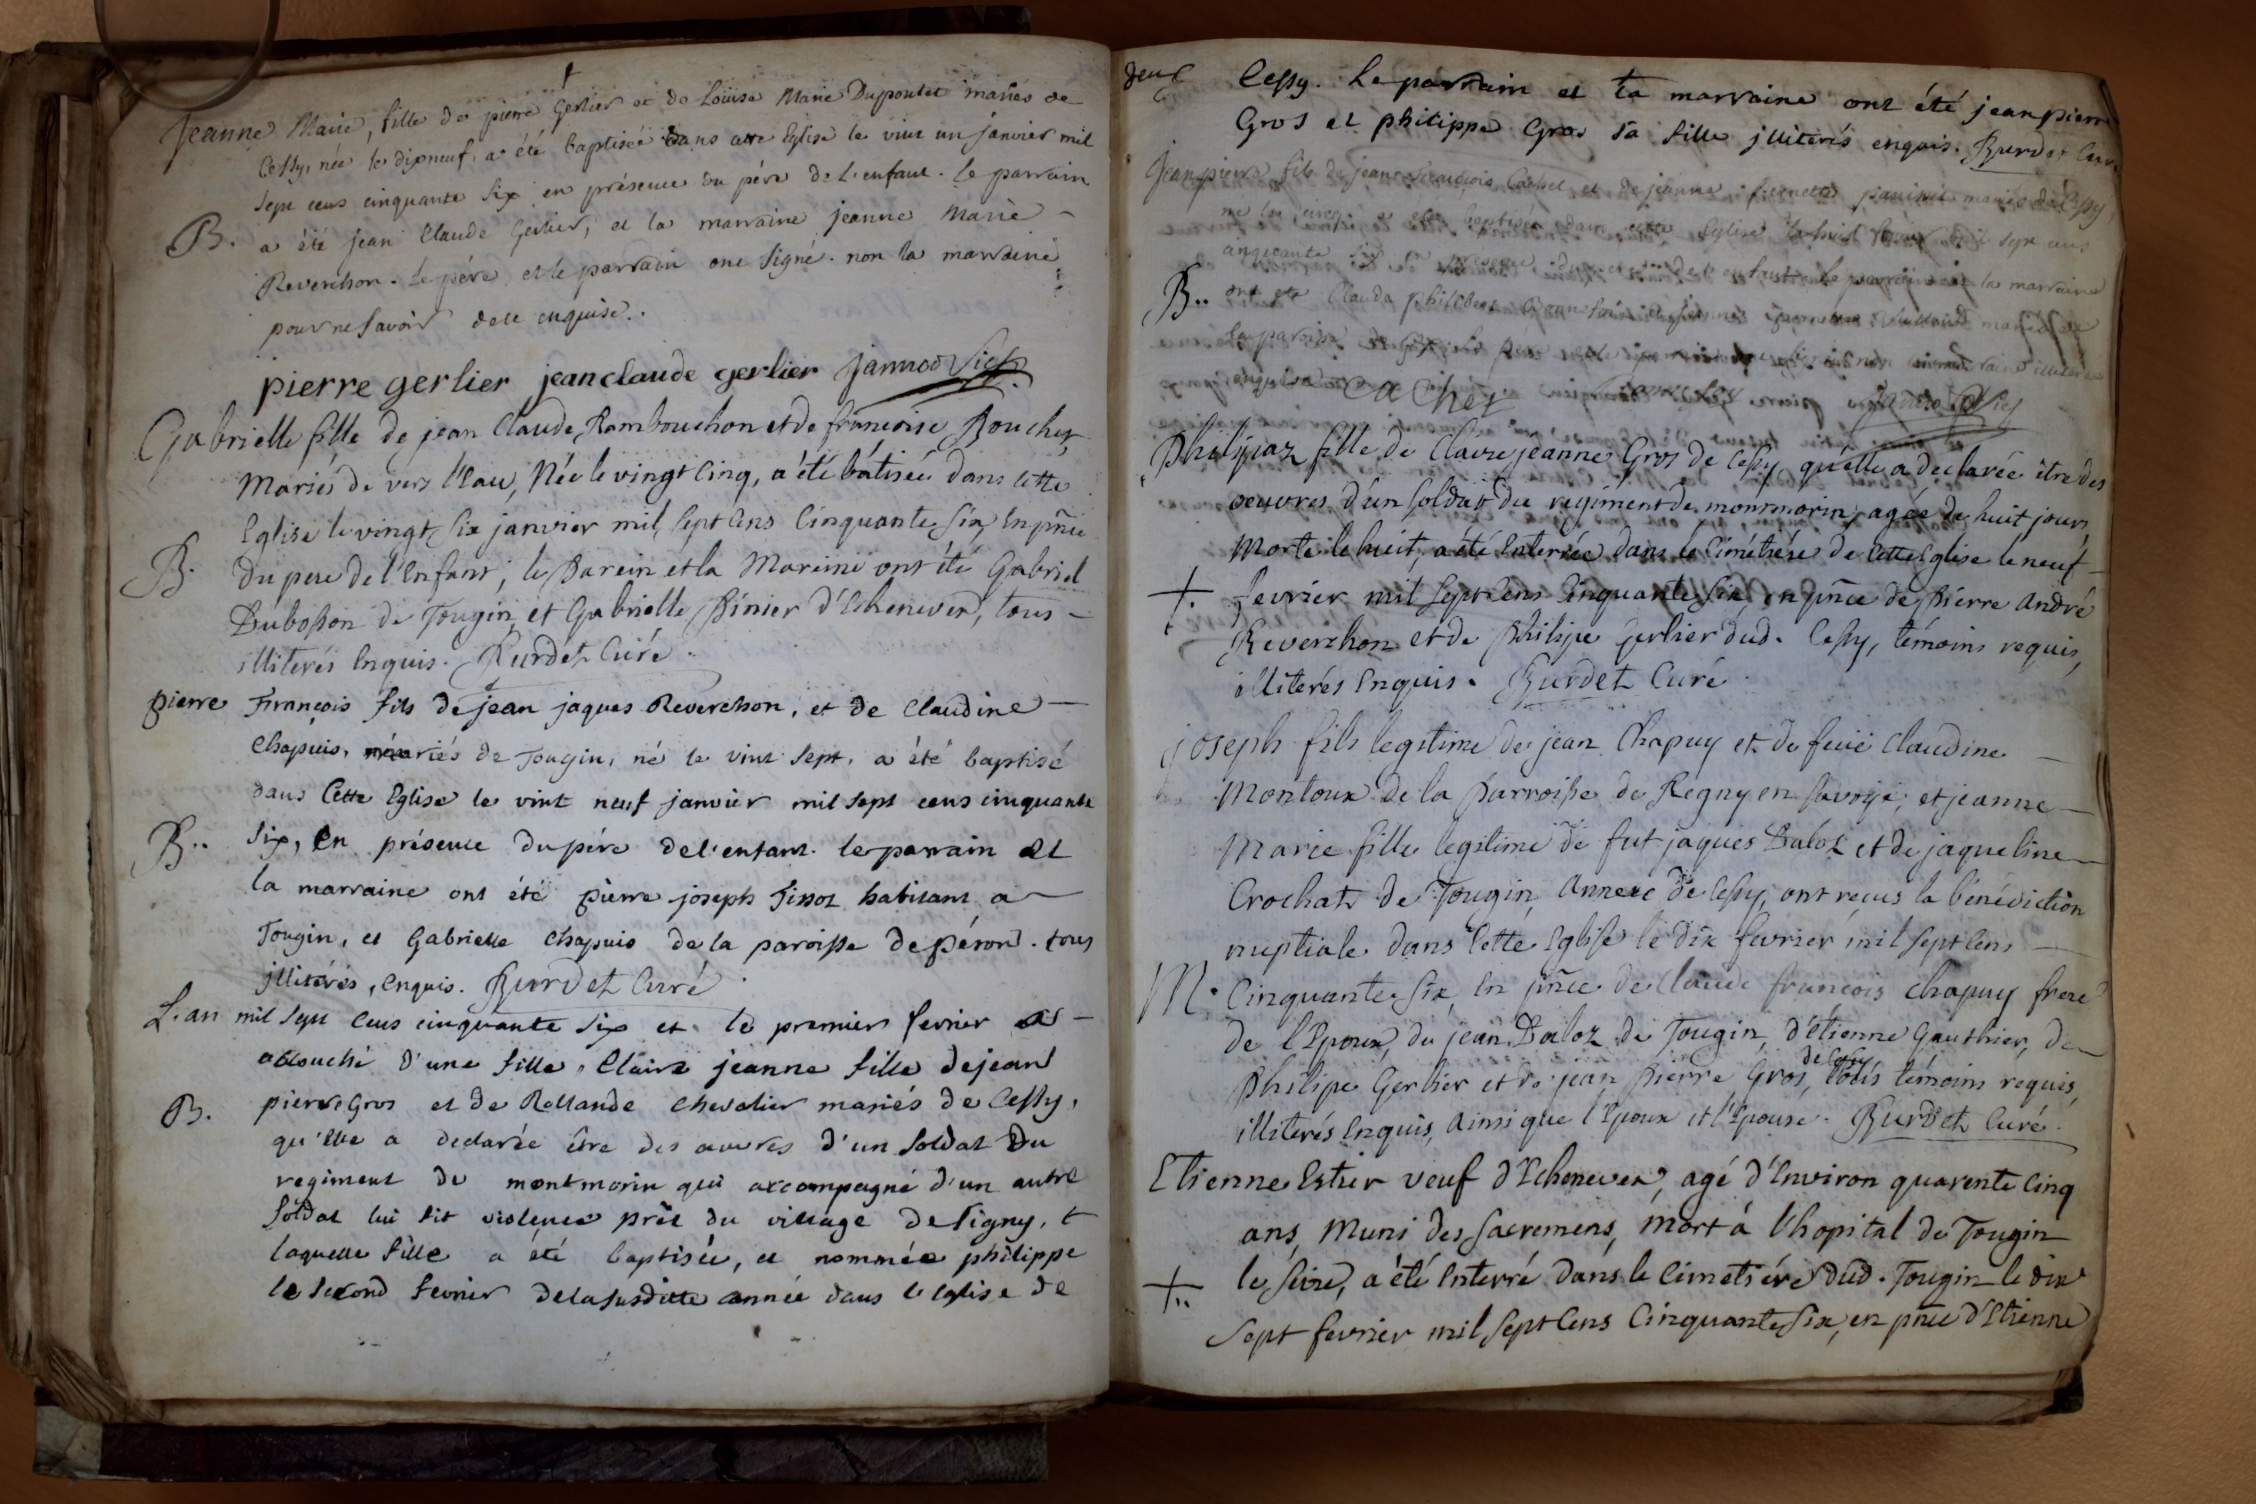 Jeanne Marie, fille de pierre Gerlier et de Louise Marie Dupoutet mariés de
Cessy, née le dixneuf, a été baptisée dans cette Eglise le vint un janvier mil
sept cens cinquante six en présence du pére de l'enfant. le parrain
B. a été jean Claude Gerlier, et la marraine jeanne Marie
Reverchon. le pére et le parrain ont signé. non la marraine
pour ne savoir de ce enquise.
pierre gerlier jeanclaude gerlier
Gabrielle fille de jean Claude Rambouchon et de francoise Bouchet
Mariés de vers l'Eau, Née le vingt Cinq, a été bátisée dans cette
Eglise le vingt Six janvier mil Sept Cens Cinquante Six, En pñce
B. Du pere de l'Enfant, le Parein et la Mareine ont été Gabriel
Dubosson de Tougin et Gabrielle Pinier d'Echenevex, tous
illiterés Enquis. Burdet Curé
pierre François fils de jean jaques Reverchon, et de Claudine
Chapuis, mariés de Tougin, né le vint sept, a été baptisé
dans Cette Eglise le vint neuf janvier mil sept cens cinquante
B.. six, En présence du pére de l'enfant. le parrain et
la marraine ont été pierre joseph Tissot habitant a
Tougin, et Gabrielle Chapuis de la paroisse de péron. tous
illitérés, enquis. Burdet Curé
L'an mil sept cens cinquante six et le premier fevrier
accouché d'une fille, Claire jeanne fille de jean
B. pierre Gros et de Rollande Chevalier mariés de Cessy,
qu'elle a declarée être des œuvres d'un soldat Du
regiment de montmorin qui accompagné d'un autre
soldat lui fit violence prêt du village de Signy,
laquelle fille a été baptisée, et nommée philippe
le second fevrier de la susditte année dans l'Eglise de
deux Cessy. Le parrain et la marraine ont été jean pierre
Gros et philippe Gros sa fille illiterés enquis. Burdet Curé
Jean pierre fils de jean francois Cachet et de jeanne pernette mariés de Cessy,
né le cinq a été baptisé dans cette Eglise le huit fevrier mil sept cens
cinquante six en présence du pere de l'enfant le parrain et la marraine
B.. ont été Claude philibert
la paroisse
Cachet
Philipaz fille de Claire jeanne Gros de Cessy qu'elle a declarée être des
oeuvres d'un soldat du regiment de montmorin, agée de huit jours,
Morte le huit, a été Enterrée dans le Cimétiére de cette Eglise le neuf
+. fevrier mil Sept Cens Cinquante Six, en pñce de Pierre André
Reverchon et de Philipe Gerlier dud. Cessy, témoins requis,
illiterés Enquis. Burdet Curé
joseph fils legitime de jean Chapuy et de feüe Claudine
Montoux de la Parroisse de Regny en Savoye, et jeanne
Marie fille legitime de fut jaques Daloz et de jaqueline
Crochat de Tougin, Annexe de Cessy, ont reçus la bénédiction
nuptiale dans Cette Eglise le dix fevrier mil Sept Cens
M. Cinquante Six En pñce de Claude francois Chapuy frere
de l'Epoux, de jean Daloz de Tougin, d'Etienne Gauthier, de
Philipe Gerlier et de jean Pierre Gros, de Cessy, tous témoins requis,
illiterés Enquis, Ainsi que l'Epoux et l'Epouse. Burdet Curé.
Etienne Estier veuf d'Echenevex, agé d'Environ quarente Cinq
ans, Muni des Sacremens, mort á l'hopital de Tougin
+.. le Seize, a été Enterré dans le Cimetiére dud. Tougin le dix
Sept fevrier mil Sept Cens Cinquante Six, en pñce d'Etienne